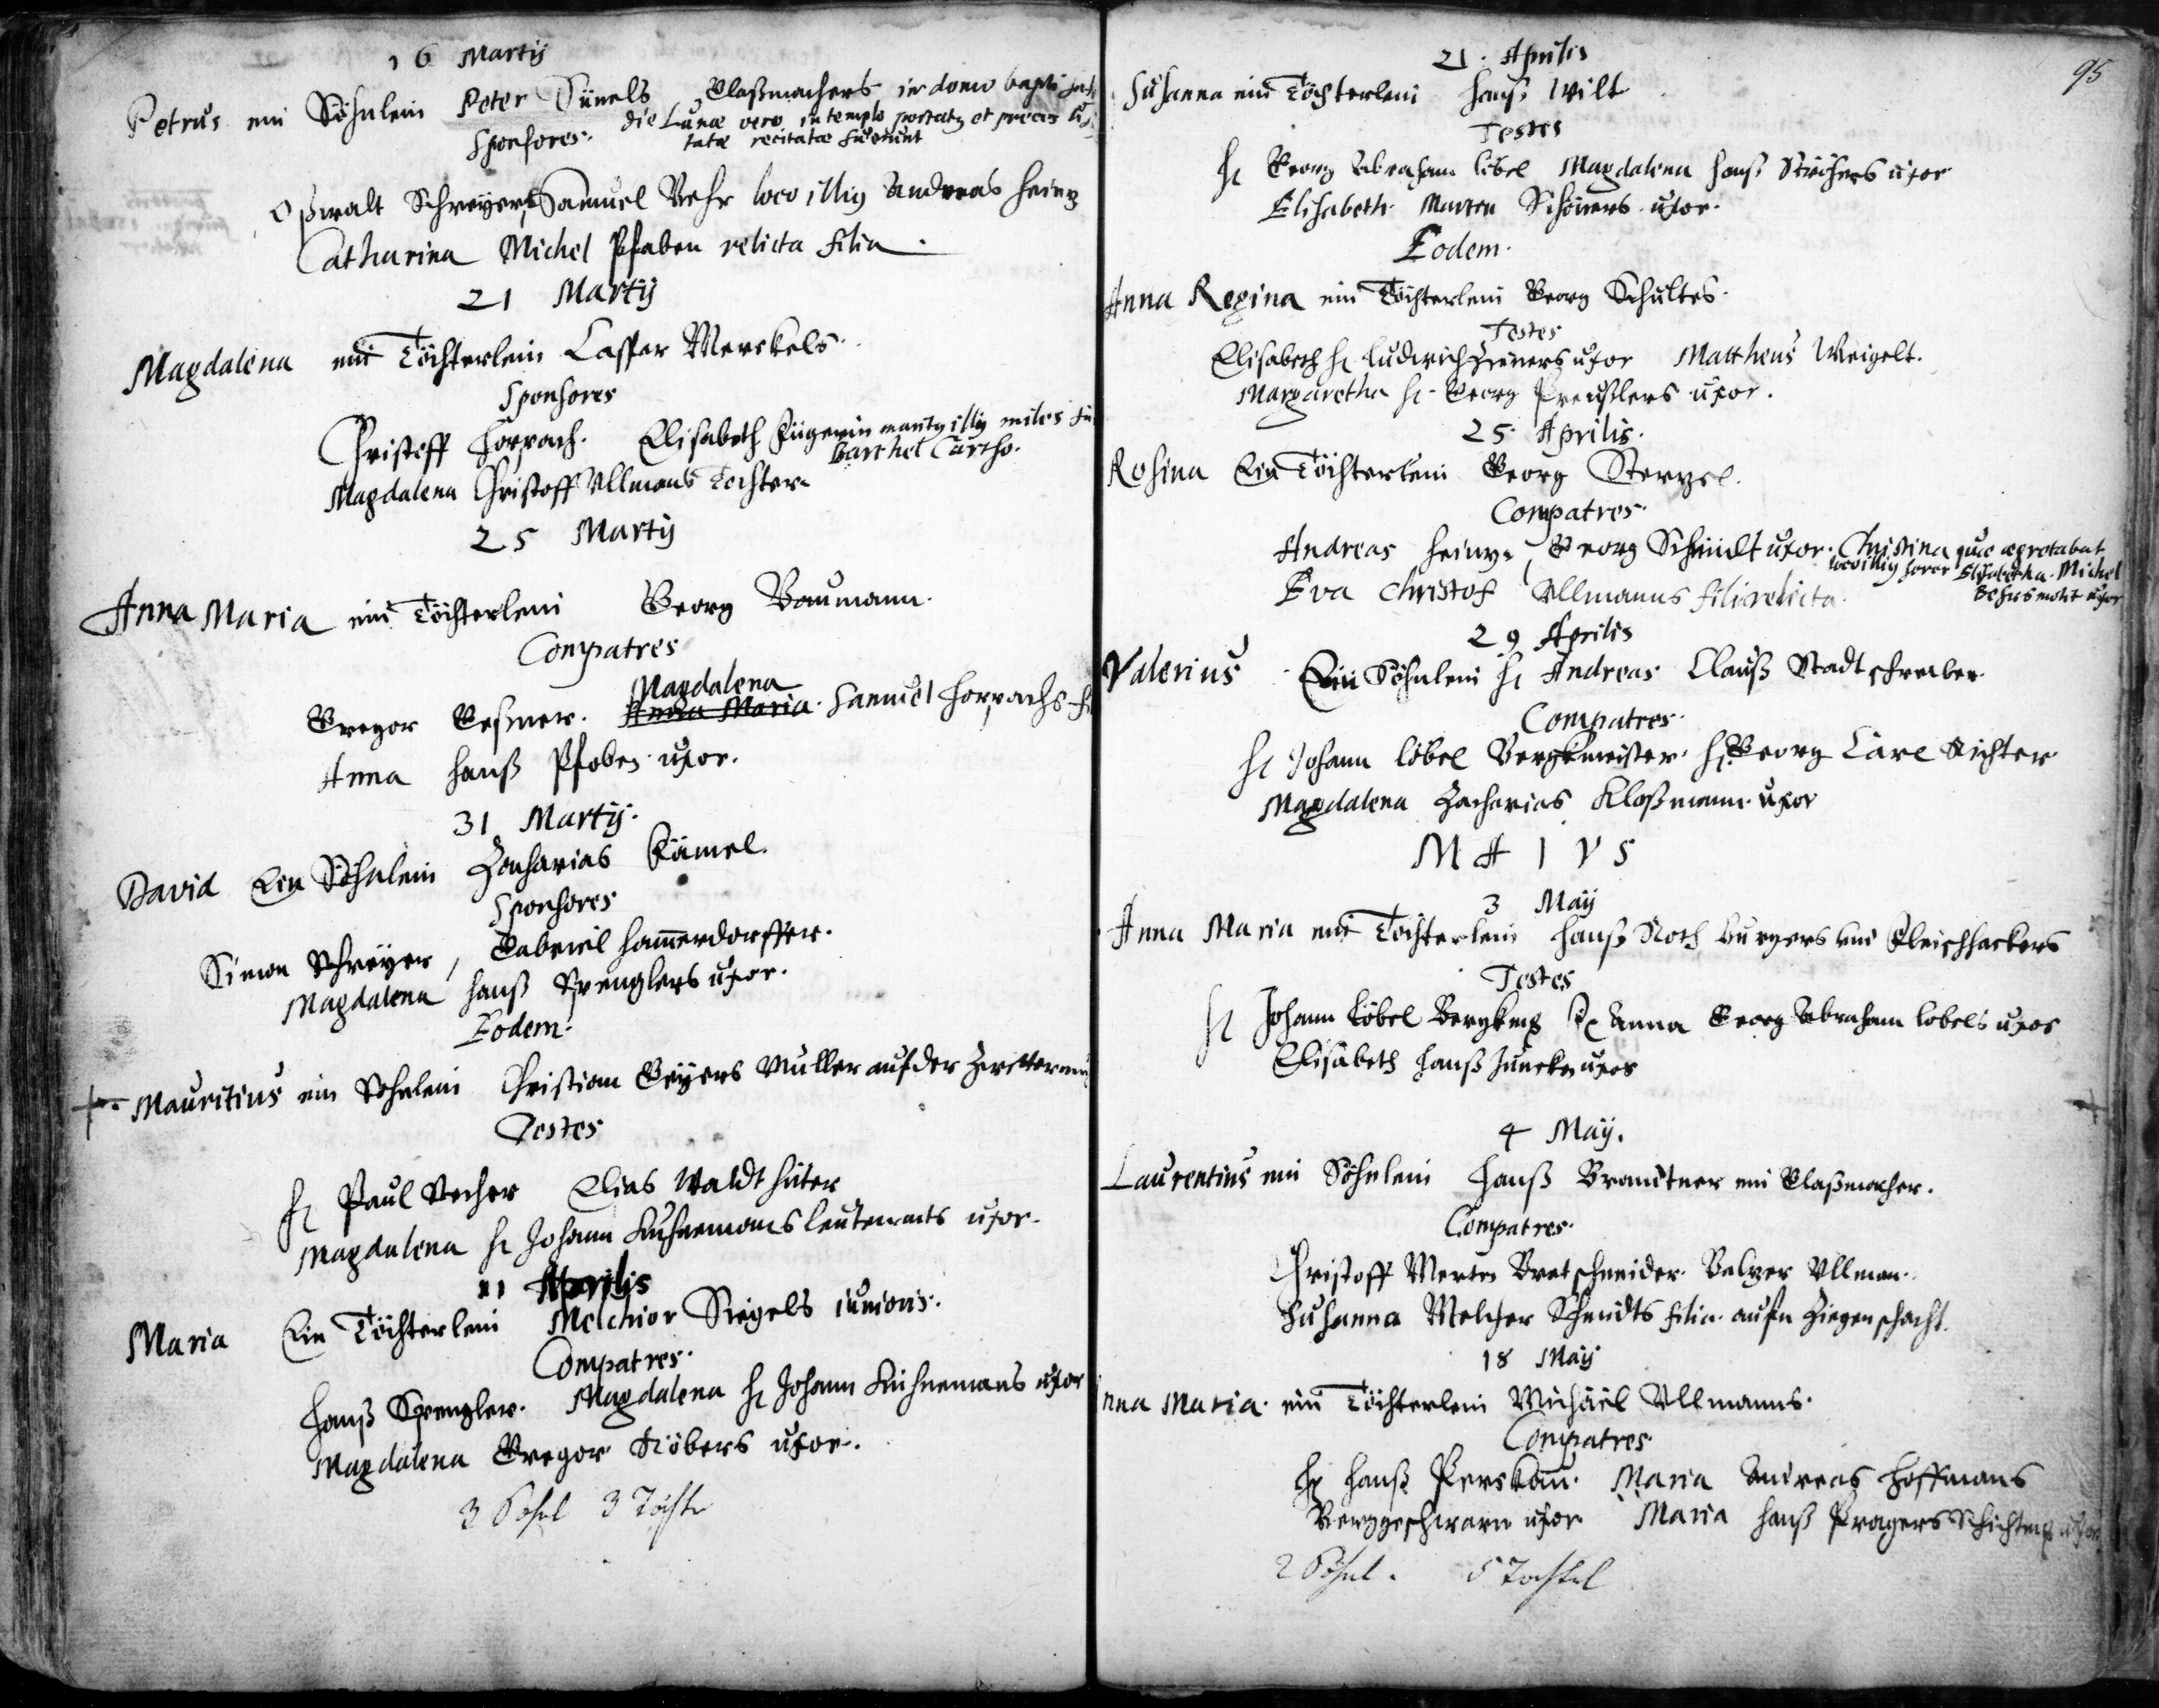 16 Martij
Petrus ein Söhnlein Peter Sünels Glaßmachers in domo bapti
die Lunæ vero in templo portatq et preces
Sponsores. tatæ recitatæ fuerunt
Oßwalt Schreyer, Samuel Behr loco illiq Andreas Heinz
Catharina Michel Pfaben relicta filia.
21 Martij
Magdalena ein Töchterlein Caspar Merckels.
Sponsores
Christoff Horpach. Elisabeth maritq illiq miles
Barthel
Magdalena Christoff Ullmans Tochter
25 Martij
Anna Maria ein Töchterlein Georg Baumann.
Compatres
Magdalena
Gregor Geßner. Anna Maria. Samuel Horpachs
Anna Hanß Pfoben uxor.
31 Martij.
David Ein Söhnlein Zacharias Kämel.
Sponsores
Simon Schreyer, Gabriel Hammerdorffer.
Magdalena Hanß Spenglers uxor.
Eodem.
Mauritius ein Söhnlein Christian Geyers Müller auf der
Testes
H Paul Elias Waldt
Magdalena H Johann Kuhnemans Leutenants uxor.
11 Aprilis
Maria Ein Töchterlein Melchior Siegels iunioris.
Compatres.
Hanß Spengler. Magdalena H Johann Kuhnemans uxor
Magdalena Gregor uxor.
3 Söhnl 3 Töchtr
95
21. Aprilis
Susanna ein Töchterlein Hanß Wilt
Testes
H Georg Abraham Löbel Magdalena Hanß uxor
Elisabeth Marten uxor.
Eodem.
Anna Regina ein Töchterlein Georg Schultes.
Testes
Elisabeth H Ludwich uxor Mattheus Weigelt.
Margaretha H. Georg Preußlers uxor.
25. Aprilis.
Rosina Ein Töchterlein Georg
Compatres.
Andreas Heinze, Georg Schmidt uxor. Christina quæ ægrotabat
loco illiq soror Elisabetha. Michel
uxor
Eva Christof Ullmanns filia relicta.
29 Aprilis
Valerius Ein Söhnlein H Andreas Clauß Stadtschreiber
Compatres.
H Johann Löbel Bergkmeister. H. Georg Carl Richter
Magdalena Zacharias Kloßmann uxor
MAIVS
3 Maij
Anna Maria ein Töchterlein Hanß Roth burgers und Fleischhackers
Testes
H Johann Löbel Bergkm Anna Georg Abraham Löbels uxor
Elisabeth Hanß uxor
4 Maij.
Laurentius ein Söhnlein Hanß Brandtner ein Glaßmacher.
Compatres.
Christoff Merten Bretschneider. Balzer Ullman.
Susanna Melcher Schmidts filia aufn Ziegenschacht.
18 Maij
nna Maria. ein Töchterlein Michael Ullmanns.
Compatres.
Hanß Maria Andreas Hoffmans
Berggeschworn uxor Maria Hanß Pragers uxor
2 Söhnl. 5